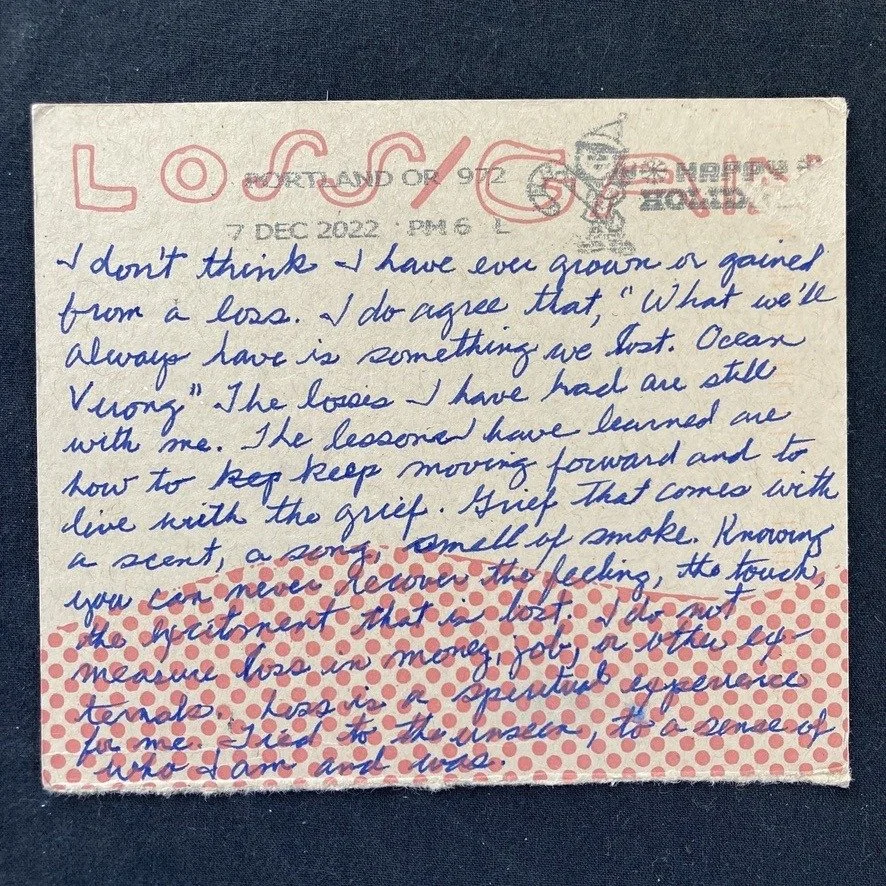 LOSS/GAIN
PORTLAND OR 972
HAPPY
HOLID
7 DEC 2022 PM 6 L
I don't think I have ever grown or gained
from a loss. I do agree that, "What we'll
always have is something we lost. Ocean
Vuong" The losses I have had are still
with me. The lessons I have learned are
how to kep keep moving forward and to
live with the grief. Grief that comes with
a scent, a song, smell of smoke. Knowing
you can never recover the feeling, the touch,
the excitment that is lost. I do not
measure loss in money, job, or other ex-
ternals. Loss is a spiritual experience
for me. Tied to the unseen, to a sense of
who I am and was.